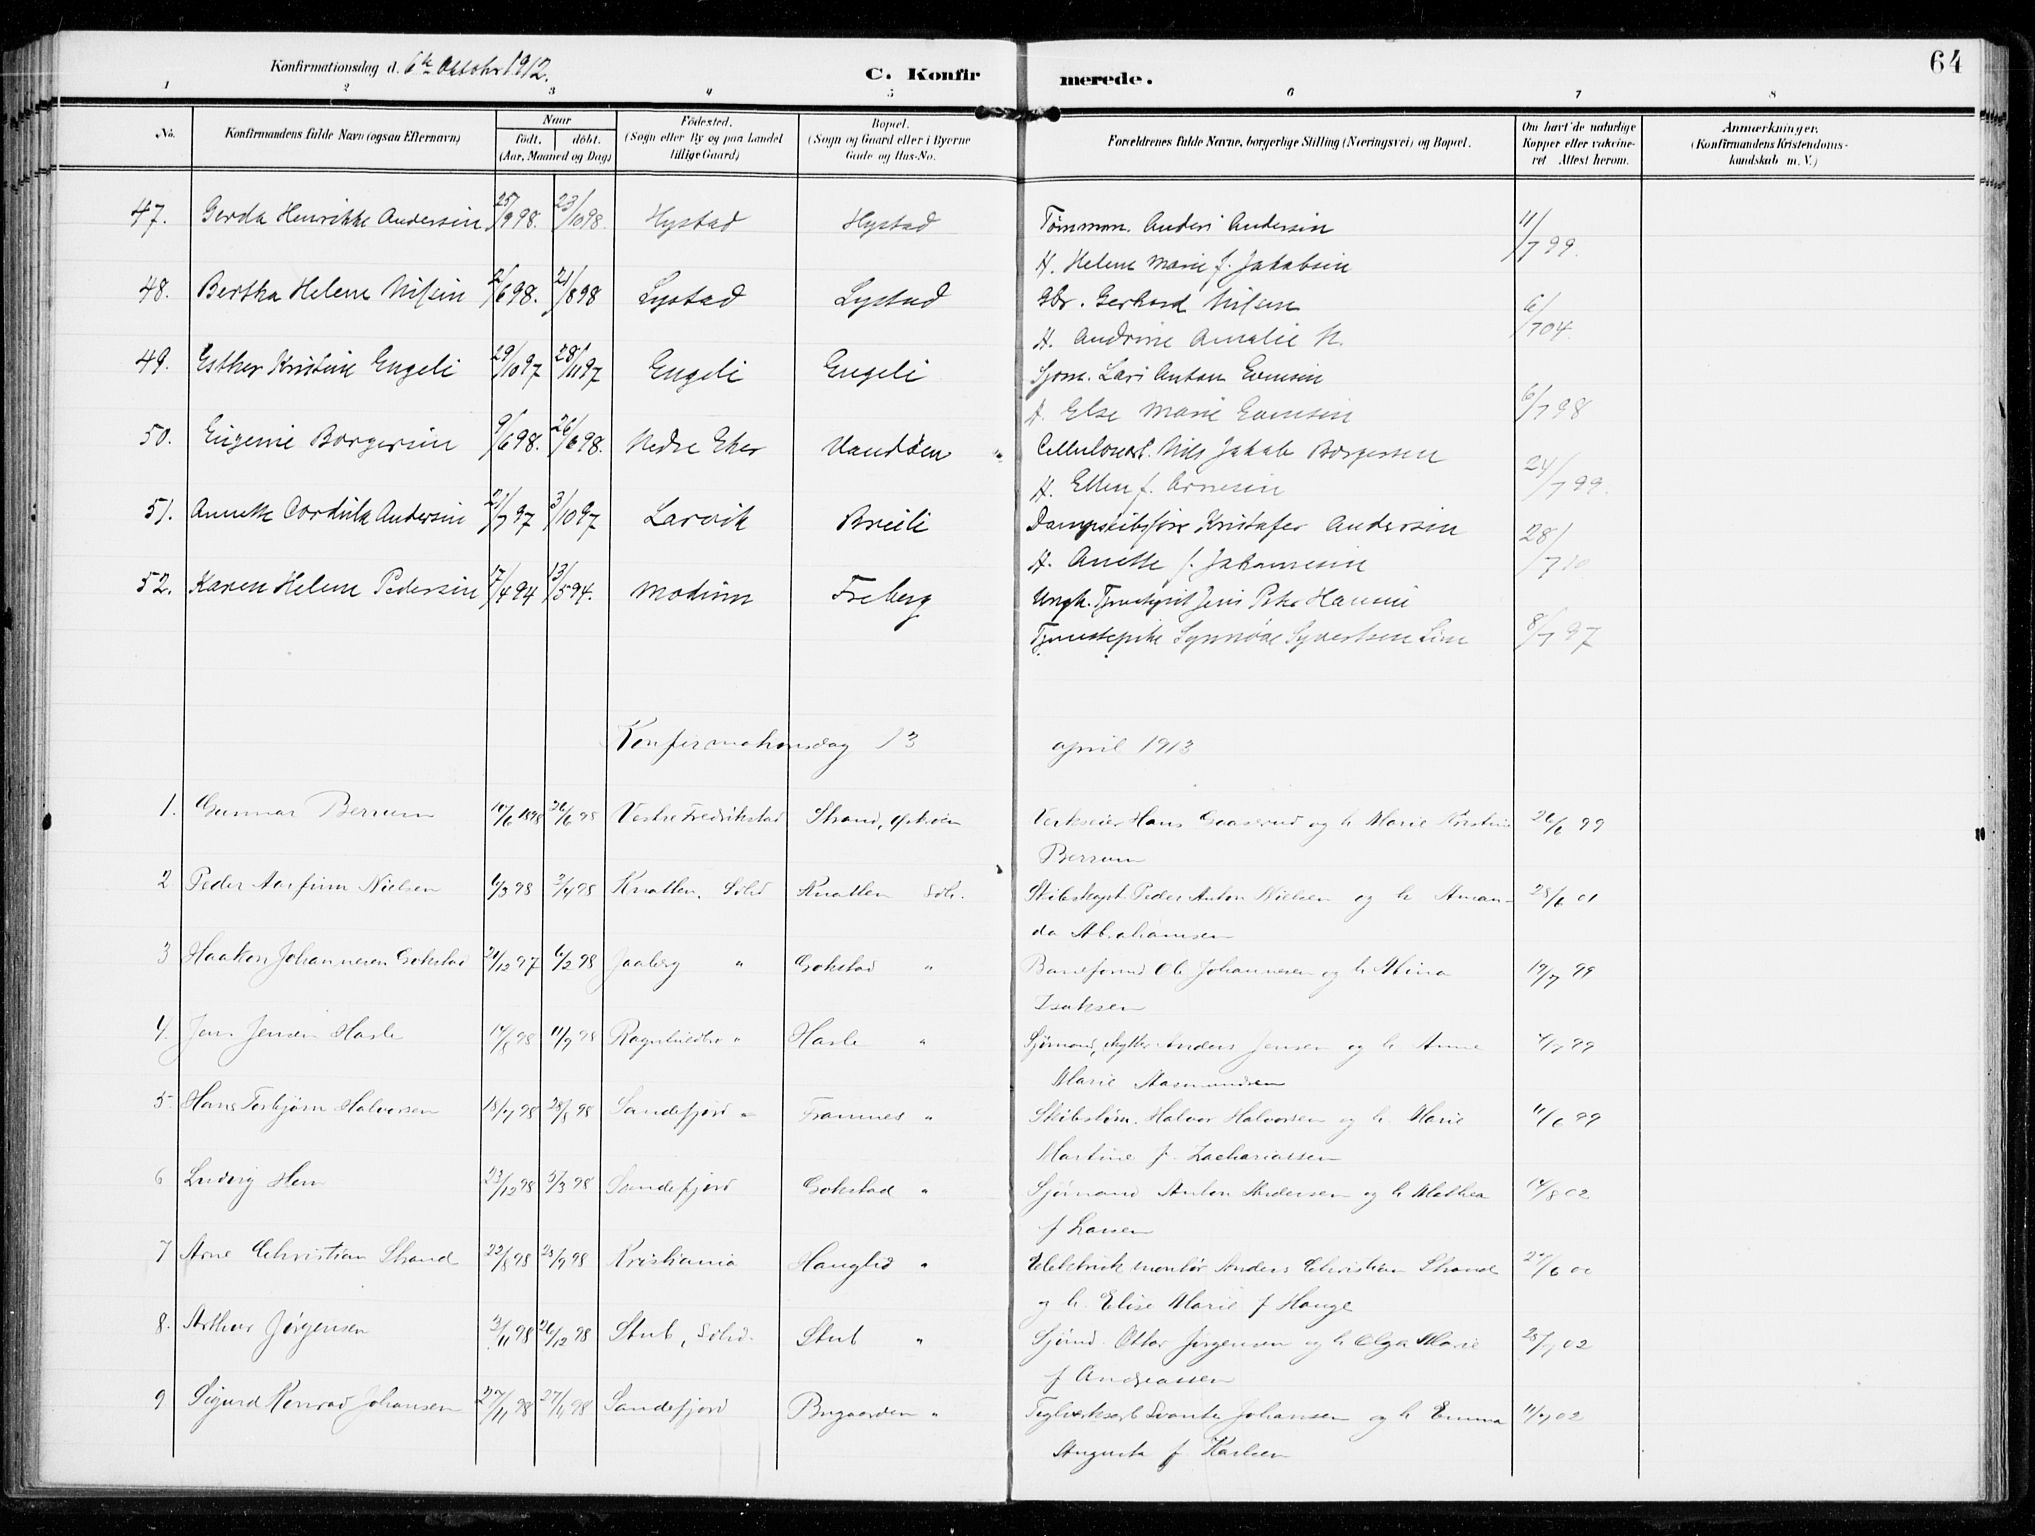 64
Konfirmationsdag d. 6te Oktober 1912. C. Konfirmerede.
1 2 3 4 5 6 7 8
No. Konfirmandens fulde Navn (ogsaa Efternavn) Naar født. døbt. (Aar, Maaned og Dag) Fødested. (Sogn eller By og paa Landet tillige Gaard) Bopæl. (Sogn og Gaard eller i Byerne Gade og Hus-No. Forældrenes fulde Navne, borgerlige Stilling (Næringsvei) og Bopæl. Om havt de naturlige Kopper eller vaksineret Attest herom. Anmærkninger. (Konfirmandens Kristendomskundskab m. V.)
47. Gerda Henrikke Andersen 25/9 98. 23/10 98. Hystad Hystad Tømmm. Anders Andersen 11/7 99.
H. Helene Marie f. Jakobsen
48. Bertha Helene Nilsen 2/6 98. 21/8 98 Lystad Lystad Gbr. Gerhard Nilsen 6/7 04.
H. Andrine Amalie N.
49. Esther Kristine Engeli 29/10 97 28/11 97 Engeli Engeli Sjøm. Lars Anton Evensen 6/7 98
H. Else Marie Evensen
50. Eugenie Borgersen 9/6 98. 26/6 98. Nedre Eker Vandøen Cellulosearb. Nils Jakob Borgersen 24/7 99.
H. Ellen f. Arnesen
51. Annette Cordula Andersen 21/7 97 3/10 97 Larvik Breili Dampskibsfører Kristofer Andersen 28/7 10
H. Anette f. Johannesen
52. Karen Helene Pedersen 17/4 94 13/5 94. Modum Freberg Ungk. Jens Hamne
Tjenestepike Synnøve Syvertsen Lim 8/7 97
Konfirmationsdag 13 april 1913
1. Gunnar Berrum 10/6 1898 26/6 98 Vestre Fredrikstad Strand, Østerøen Verkseier Hans Gaaserud og h. Marie Kristine 26/6 99
Berrum
2 Peder Aarfinn Nielsen 6/3 98 3/4 98 Knatten, Sdhd Knatten Sdh. Skibskapt. Peder Anton Nielsen og h. Aman- 28/6 01
da Abrahamsen
3 Haakon Johannesen Gokstad 24/12 97 6/2 98 Jaaberg " Gokstad " Baneformd Ole Johannesen og h. Mina 19/7 99
Isaksen
4. Jens Jensen Hasle 14/8 98 11/9 98 Ragnhildsr. " Hasle " Sjømand, skytter Anders Jensen og h. Anne 4/7 99
Marie Aasmundsen
5. Hans Torbjørn Halvorsen 18/7 98 28/8 98 Sandefjord " Framnes " Skibstøm. Halvor Halvorsen og h. Marie 11/6 99
Martine f. Zachariassen
6 Ludvig Hem 23/12 98 5/3 98 Sandefjord Gokstad " Sjømand Anton Andersen og h. Mathea 14/8 02
f Larsen
7 Arne Christian Strand 22/8 98 25/9 98 Kristiania Hauglid " Elektrisk montør Anders Christian Strand 27/6 00
og h. Elise Marie f Hauge
8. Arthur Jørgensen 3/11 98 26/12 98 Stub, Sdhd. Stub " Sjømd. Otto Jørgensen og h Olga Marie 25/7 02
f Andreassen
9 Sigurd Konrad Johansen 27/11 98 27/11 98 Sandefjord Bugaarden " Teglverksarb. Svante Johansen og h Emma 11/7 02
Augusta f Karlsen